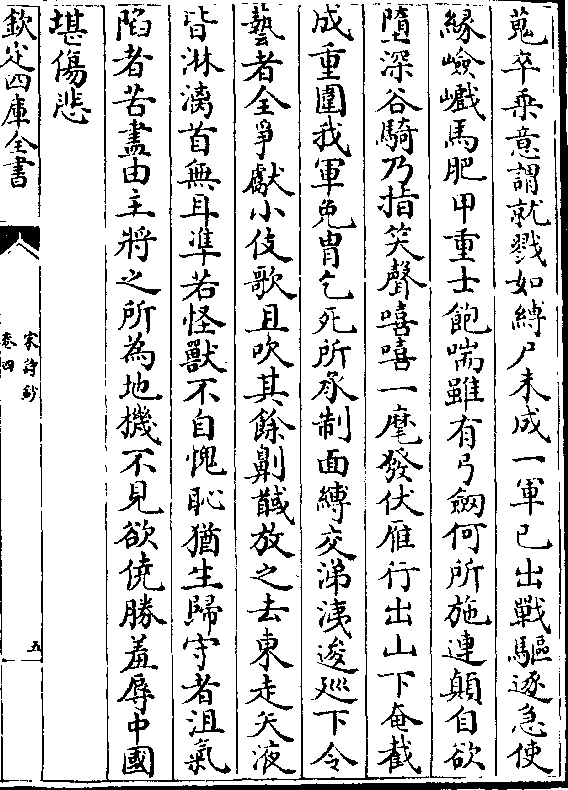 蒐卒乘意謂就戮如縛尸未成一軍已出戰驅逐急使
緣嶮巇馬肥甲重士飽喘雖有弓劒何所施連顛自欲
墮深谷騎乃指笑聲嘻嘻一麾發伏雁行出山下奄截
成重圍我軍免胄乞死所承制面縛交涕洟逡廵下令
藝者全爭獻小伎歌且吹其餘劓馘放之去東走矢液
皆淋漓首無耳凖若怪獸不自愧恥猶生歸守者沮氣
陷者苦盡由主將之所為地機不見欲僥勝羞辱中國
堪傷悲
欽定四庫全書
宋詩鈔
卷四
五